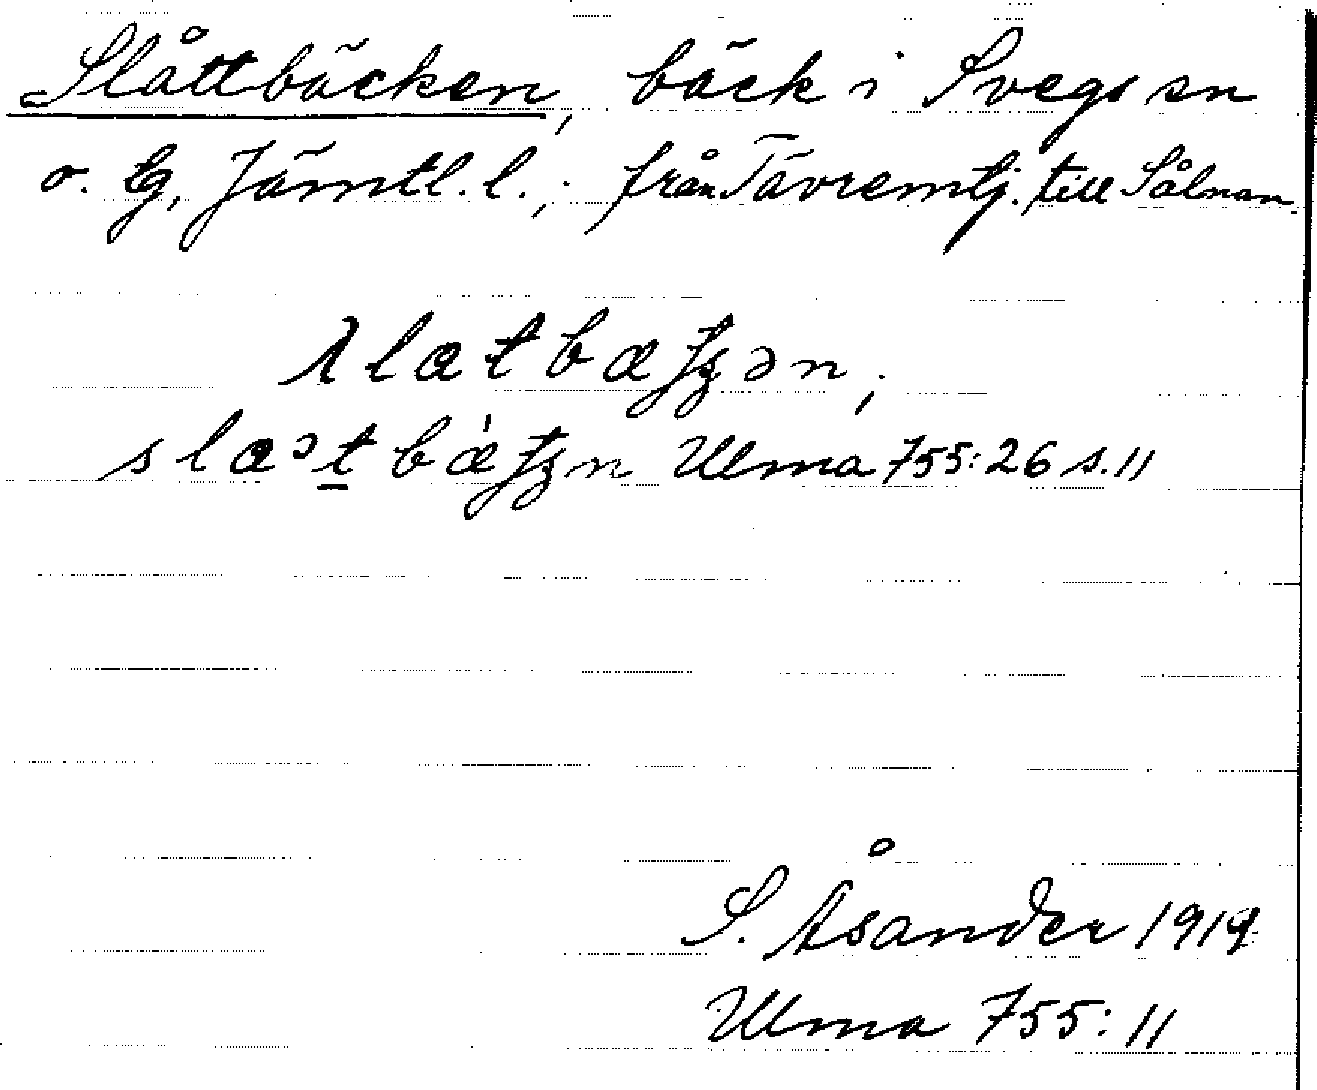 Slåttbäcken, bäck i Svegs sn
o. tg, Jämtl. l.; från Tävremtj. till Sålnan.
Ulma 755:26 s. 11
S. Åsander 1919
Ulma 755:11